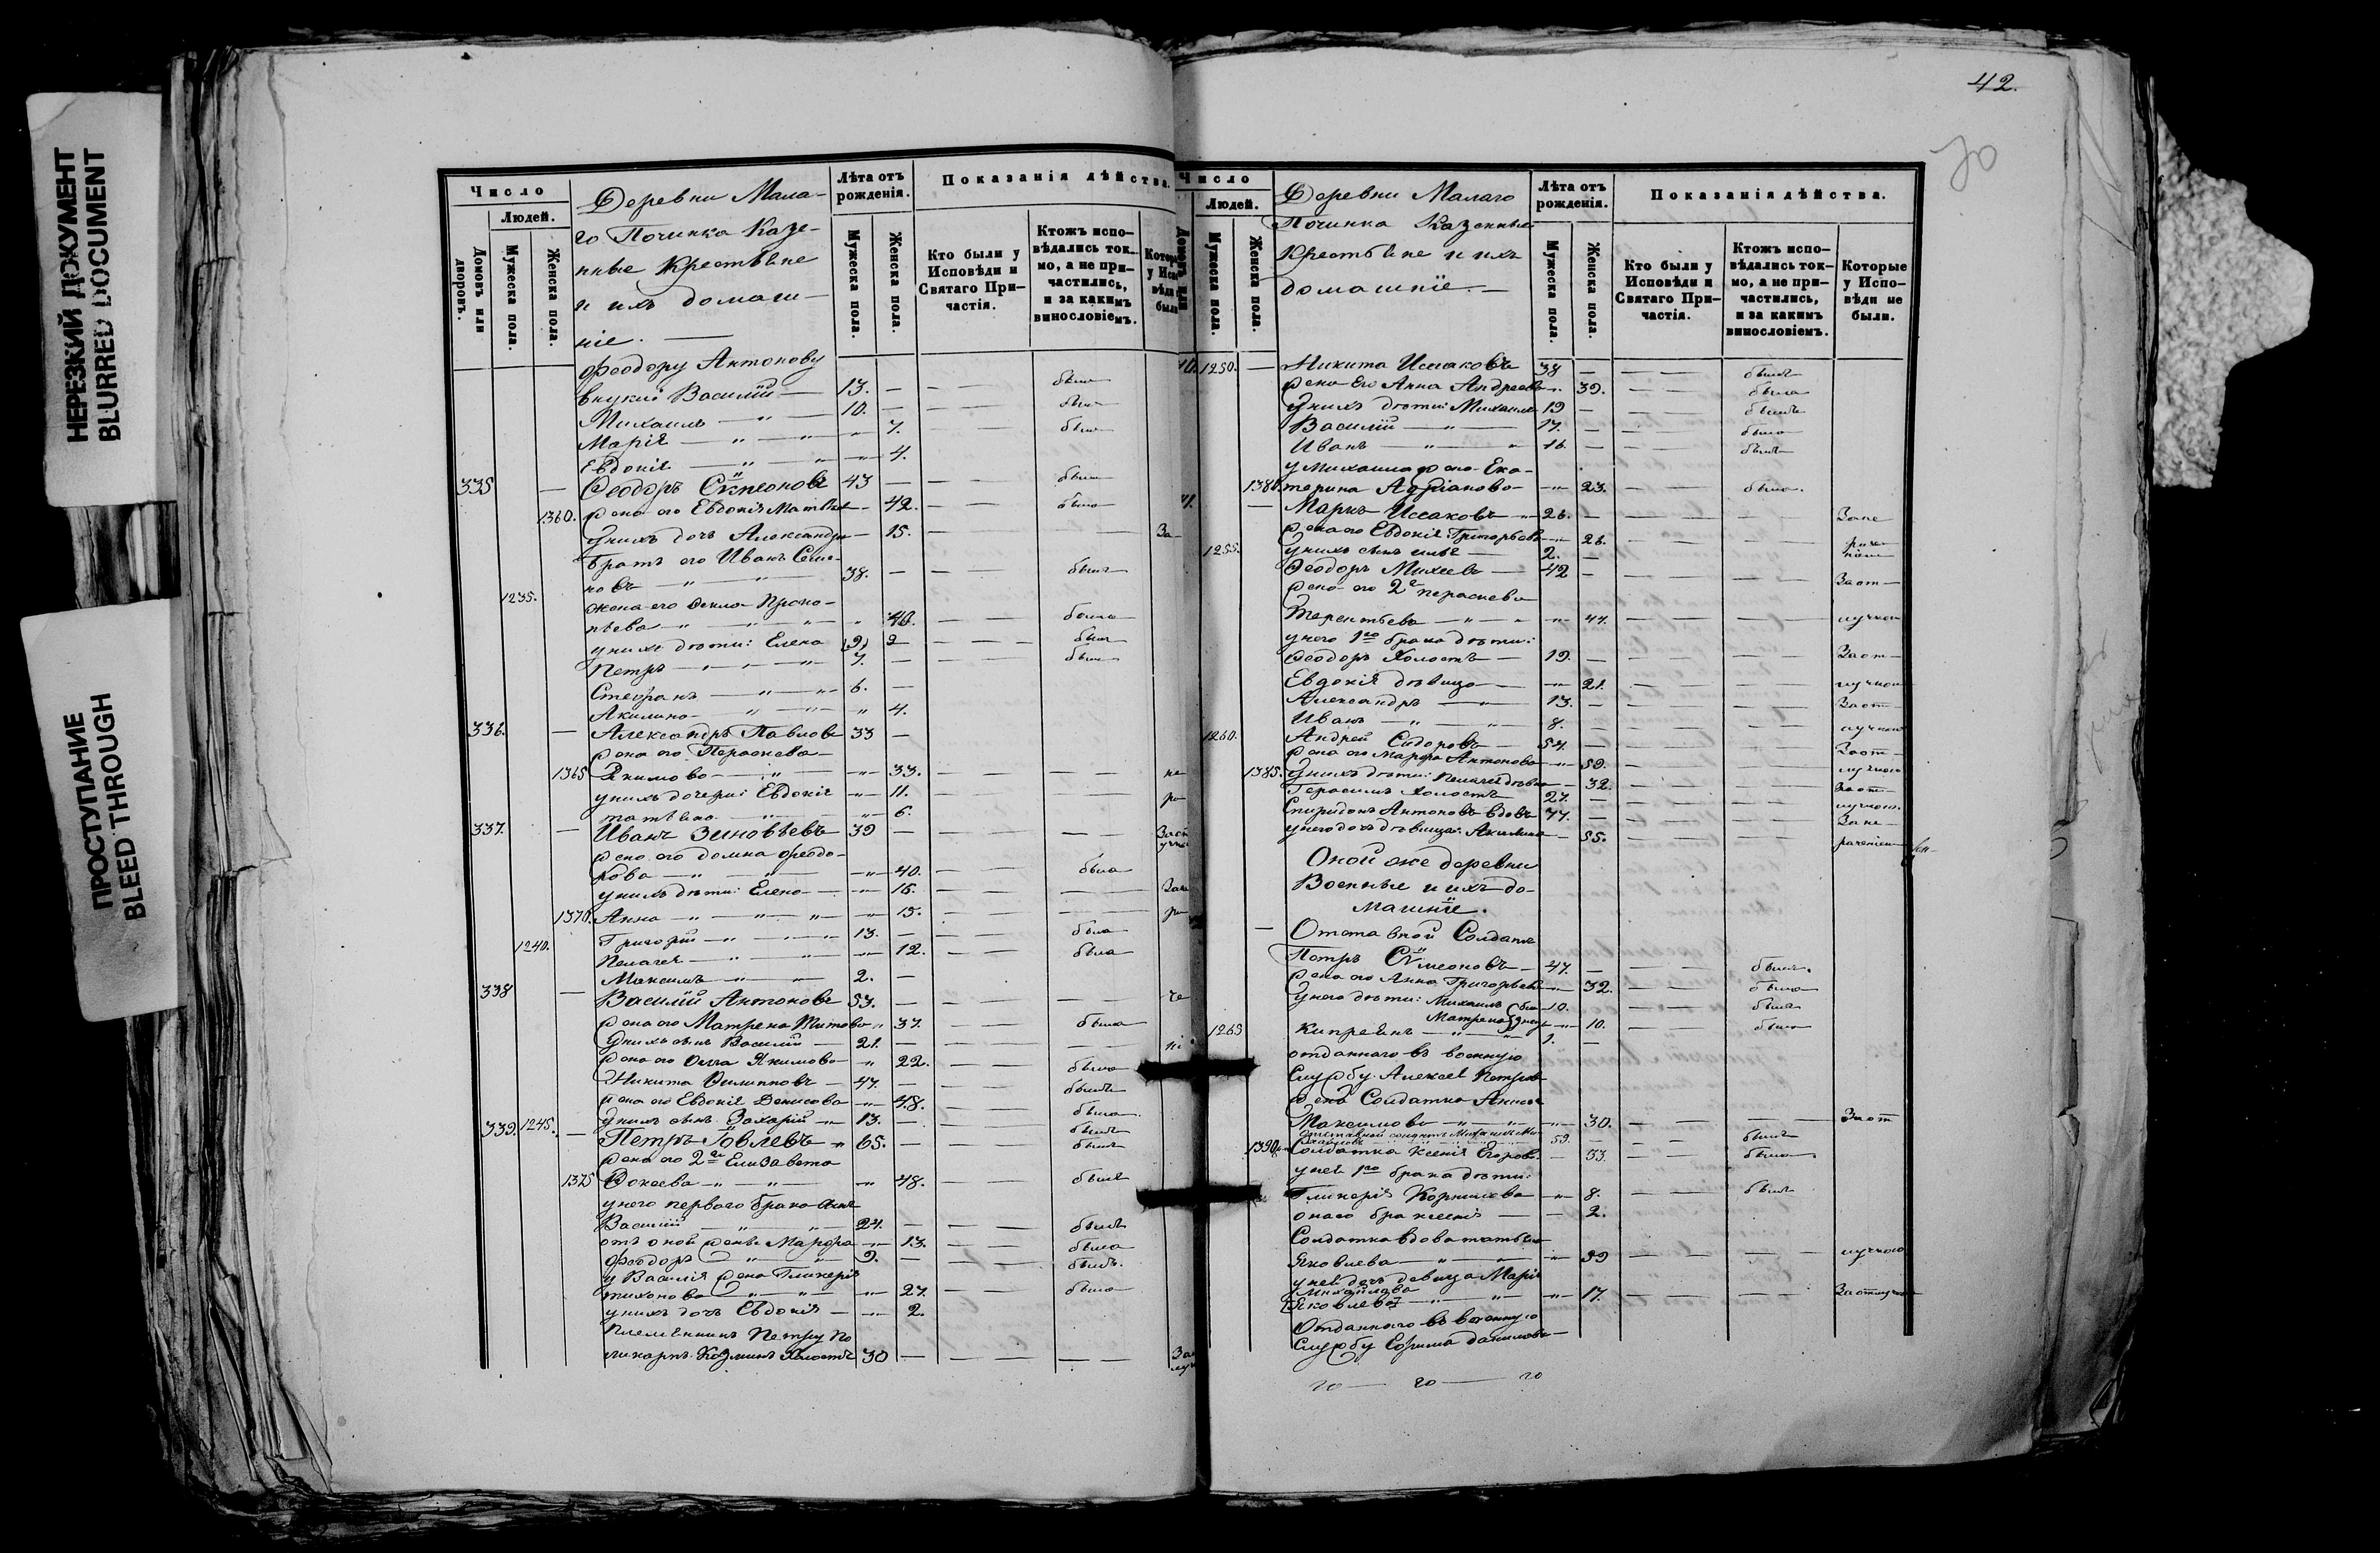 НЕРЕЗКИЙ ДОКУМЕНТ
BLURRED DOCUMENT
ПРОСТУПАНИЕ
BLEED THROUGH
Число
Людей.
Домовъ или дворовъ.
Мужеска пола.
Женска пола.
Деревни Мала-
го Починка Казе-
нные Крестьяне
и ихъ домаш-
ніе.
Лѣта отъ рожденія.
Мужеска пола.
Женска пола.
Показанія дѣйства.
Кто были у Исповѣди и Святаго При-частія.
Ктожъ испо-вѣдались ток-мо, а не при-частились, и за какимъ винословіемъ.
Ѳеодору Антонову
внуки: Василій 13. были
Михаилъ 10. были
Марія 7. были
Евдокія 4.
335 Ѳеодоръ Сѵмеоновъ 43 были
1360. жена его Евдокія 42. была
у нихъ дочь Александра 15. За
братъ его Иванъ Семе-
1235. новъ 38. былъ
жена его Ѳекла Проко-
пьева 40. была
у нихъ дѣти: Елена 9 были
Петръ 7. были
Стефанъ 6.
Акилина 4.
336. Александръ Павловъ 33
жена его Параскева
1365 Якимова 33. не
у нихъ дочери: Евдокія 11. ра
Татьяна 6.
337. Иванъ Зиновьевъ 39
жена его Домна Ѳеодо-
рова 40. была
у нихъ дѣти: Елена 16.
1370. Анна 15. ра
Григорій 13. была
1240. Пелагея 12. была
Максимъ 2.
338 Василій Антоновъ 53.
жена его Матрена Титова 37. была
У нихъ сынъ Василій 21.
жена его Якимова 22. была
Никита Филипповъ 47. былъ
жена его Евдокія Денисова 48. была
у нихъ сынъ Захарій 13. былъ
339. 1245. Петръ Іовлевъ 65. былъ
жена его 2я Елизавета
1375 Фокеева 48. была
у него перваго брака сынъ
Василій 24. былъ
отъ оной жены Марфа 13. была
Ѳеодоръ 9. былъ.
у Василія жена Гликерія
Тихонова 27. была
у нихъ дочь Евдокія 2.
Племянникъ Петру По
ликарпъ Козминъ холостъ 30
42.
70
Число
Людей.
Мужеска пола.
Женска пола.
Деревни Малаго
Починка Казенные
Крестьяне и ихъ
домашніе.
Лѣта отъ рожденія.
Мужеска пола.
Женска пола.
Показанія дѣйства.
Кто были у Исповѣди и Святаго При-частія.
Ктожъ испо-вѣдались ток-мо, а не при-частились, и за какимъ винословіемъ.
Которые у Испо-вѣди не были.
1250. Никита Исааковъ 38 былъ
жена его Анна Андреева 39. была
У нихъ дѣти: Михаилъ 19 былъ
Василій 17. были
Иванъ 16. былъ
у Михаила жена Ека-
1380. терина Адріанова 23. была.
Маркъ Исааковъ 26. Зане
жена его Евдокія Григорьева 26. раче
1255. у нихъ сынъ Илья 2. ніем
Ѳеодоръ Михеевъ 42 Заот
жена его 2я Параскева
Терентьева 47. лучкою
у него 1го брака дѣти:
Ѳеодоръ холостъ 19. Заот
Евдокія дѣвица 21. лучкою
Александръ 13. Заот
Иванъ 8. лучкою
1260. Андрей Сидоровъ 54. Заот
жена его Марфа Антонова 59. лучкою
1385. У нихъ дѣти: Пелагея дѣвка 32. Заот
Герасимъ холостъ 27. лучкою.
Спиридонъ Антоновъ вдовъ 77. Зане
у него дочь дѣвица Акилина 55. раченіем
Оной же деревни
Военные и ихъ до-
машніе.
Отставной Солдатъ
Петръ Сѵмеоновъ 47. былъ.
жена его Анна Григорьева 32. была
У него дѣти: Михаилъ 10. былъ
Матрена 10. была
1265 Кипреянъ 1.
отданнаго въ военную
Службу Алексея Петрова
жена Солдатка Анисья
Максимова 30. Заот
Отставной солдатъ 59. былъ
1390. Солдатка Ксенія Егорова 53. была.
у ней 1го брака дѣти:
Гликерія Корнилева 8. былъ
2.
Солдатка вдова Татьяна
Яковлева 59 лучкою
у ней дочь девица Марія
Михайлова
Яковлева 17. Заотлучкою
Отданнаго въ военную
Службу Ефима Данилова